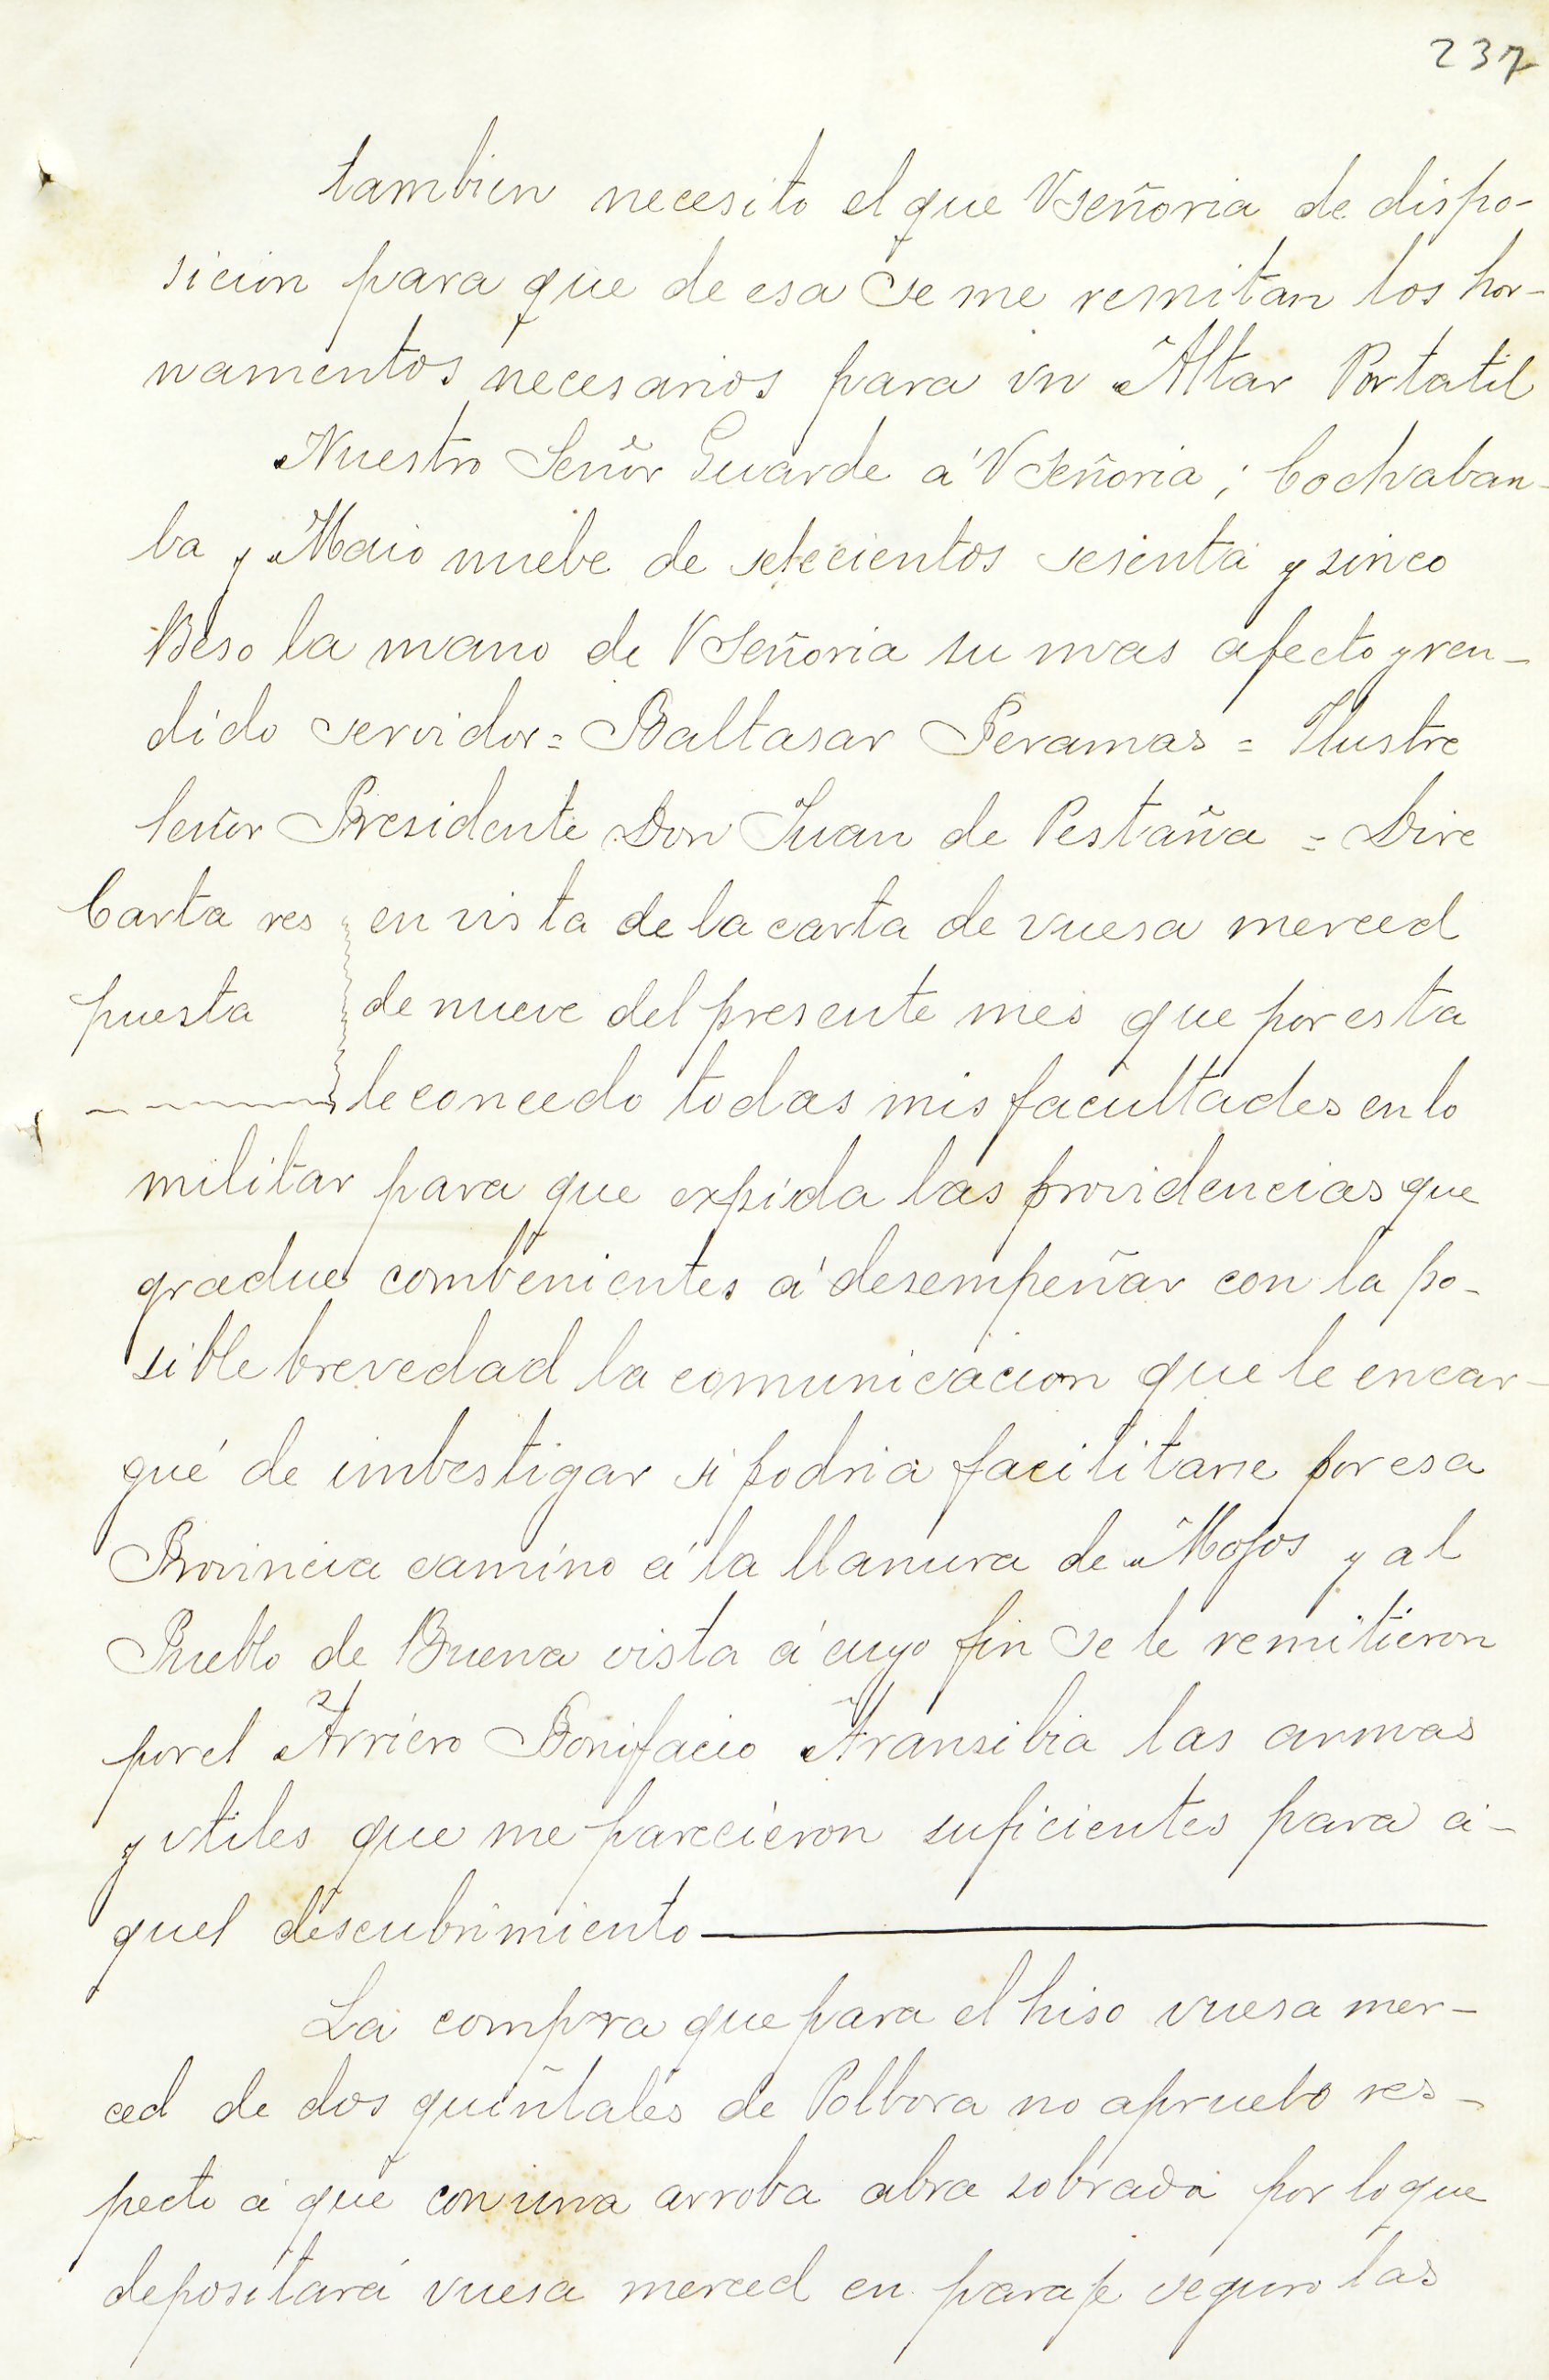 237
tambien necesito el que VSeñoria de dispo-
sicion para que de esa se me remitan los hor-
namentos necesarios para vn Altar Portatil
Nuestro Señor Guarde a' VSeñoria; Cochaban-
ba y Maio nuebe de setecientos sesenta y sinco
Beso la mano de VSeñoria su mas afecto y ren-
dido servidor = Baltasar Peramas = Ilustre
Señor Presidente Don Juan de Pestaña = Dire
Carta res
puesta
en vista de la carta de vuesa merced
de nueve del presente mes que por esta
le concedo todas mis facultades en lo
militar para que expida las providencias que
gradue combenientes a' desempeñar con la po-
sible brevedad la comunicacion que le encar-
gué de imbestigar si podria facilitarse por esa
Provincia camino a' la llanura de Mojos y al
Pueblo de Buena vista a' cuyo fin se le remitieron
por el Arriero Bonifacio Aransibia las armas
y vtiles que me parecieron suficientes para a-
quel descubrimiento
La compra que para el hiso vuesa mer-
ced de dos quintales de Polbora no apruebo res-
pecto a' que con una arroba abra sobrada por lo que
depositará vuesa merced en paraje seguro las